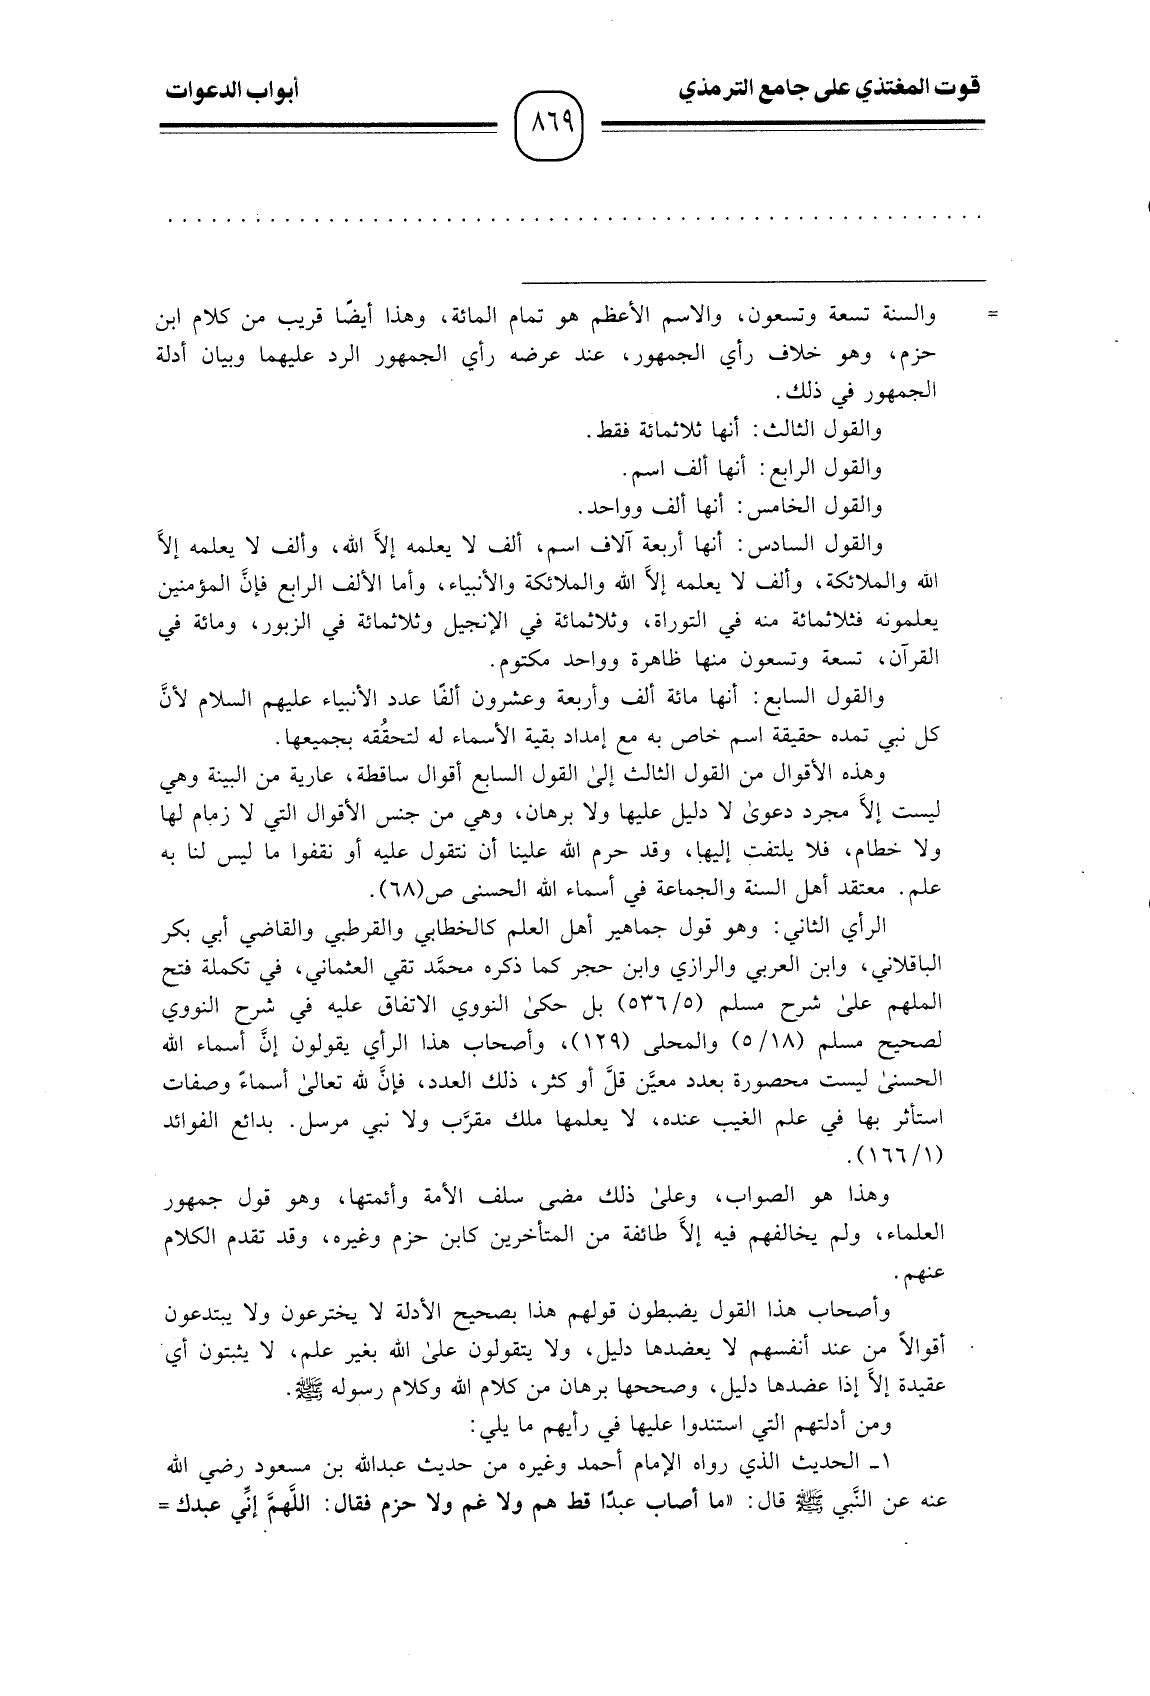 قوت المغتذي على جامع الترمذي
أبواب الدعوات
٨٦٩
. . . . . . . . . . . . . . . . . . . . . . . . . . . . . . . . . . . . . . . . . . . . . . . .
= والسنة تسعة وتسعون، والاسم الأعظم هو تمام المائة، وهذا أيضًا قريب من كلام ابن
حزم، وهو خلاف رأي الجمهور، عند عرضه رأي الجمهور الرد عليهما وبيان أدلة
الجمهور في ذلك.
والقول الثالث: أنها ثلاثمائة فقط.
والقول الرابع: أنها ألف اسم.
والقول الخامس: أنها ألف وواحد.
والقول السادس: أنها أربعة آلاف اسم، ألف لا يعلمه إلاَّ الله، وألف لا يعلمه إلاَّ
الله والملائكة، وألف لا يعلمه إلاَّ الله والملائكة والأنبياء، وأما الألف الرابع فإنَّ المؤمنين
يعلمونه فثلاثمائة منه في التوراة، وثلاثمائة في الإنجيل وثلاثمائة في الزبور، ومائة في
القرآن، تسعة وتسعون منها ظاهرة وواحد مكتوم.
والقول السابع: أنها مائة ألف وأربعة وعشرون ألفًا عدد الأنبياء عليهم السلام لأنَّ
كل نبي تمده حقيقة اسم خاص به مع إمداد بقية الأسماء له لتحقُّقه بجميعها.
وهذه الأقوال من القول الثالث إلىٰ القول السابع أقوال ساقطة، عارية من البينة وهي
ليست إلاَّ مجرد دعوىٰ لا دليل عليها ولا برهان، وهي من جنس الأقوال التي لا زمام لها
ولا خطام، فلا يلتفت إليها، وقد حرم الله علينا أن نتقول عليه أو نقفوا ما ليس لنا به
علم. معتقد أهل السنة والجماعة في أسماء الله الحسنى ص(٦٨).
الرأي الثاني: وهو قول جماهير أهل العلم كالخطابي والقرطبي والقاضي أبي بكر
الباقلاني، وابن العربي والرازي وابن حجر كما ذكره محمَّد تقي العثماني، في تكملة فتح
الملهم علىٰ شرح مسلم (٥٣٦/٥) بل حكىٰ النووي الاتفاق عليه في شرح النووي
لصحيح مسلم (٥/١٨) والمحلى (١٢٩)، وأصحاب هذا الرأي يقولون إنَّ أسماء الله
الحسنىٰ ليست محصورة بعدد معيَّن قلَّ أو كثر، ذلك العدد، فإنَّ لله تعالىٰ أسماءً وصفات
استأثر بها في علم الغيب عنده، لا يعلمها ملك مقرَّب ولا نبي مرسل. بدائع الفوائد
(١٦٦/١).
وهذا هو الصواب، وعلىٰ ذلك مضى سلف الأمة وأئمتها، وهو قول جمهور
العلماء، ولم يخالفهم فيه إلاَّ طائفة من المتأخرين كابن حزم وغيره، وقد تقدم الكلام
عنهم.
وأصحاب هذا القول يضبطون قولهم هذا بصحيح الأدلة لا يخترعون ولا يبتدعون
أقوالاً من عند أنفسهم لا يعضدها دليل، ولا يتقولون علىٰ الله بغير علم، لا يثبتون أي
عقيدة إلاَّ إذا عضدها دليل، وصححها برهان من كلام الله وكلام رسوله ﷺ.
ومن أدلتهم التي استندوا عليها في رأيهم ما يلي:
١ـ الحديث الذي رواه الإمام أحمد وغيره من حديث عبدالله بن مسعود رضي الله
عنه عن النَّبي ﷺ قال: «ما أصاب عبدًا قط هم ولا غم ولا حزم فقال: اللَّهمَّ إنِّي عبدك =